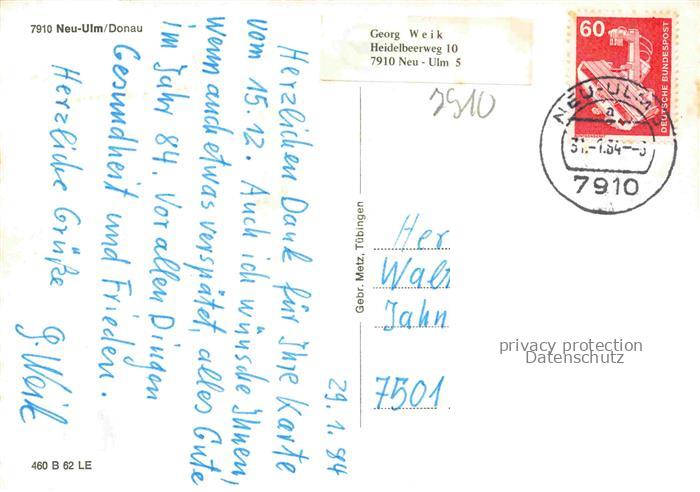 7910 Neu-Ulm/Donau
29.1.84
Herzlichen Dank für Ihre Karte
vom 15.12. Auch ich wünsche Ihnen,
wenn auch etwas verspätet, alles Gute
im Jahr 84. Vor allen Dingen
Gesundheit und Frieden.
Herzliche Grüße
G. Weik
460 B 62 LE
Gebr. Metz, Tübingen
Georg Weik
Heidelbeerweg 10
7910 Neu - Ulm 5
7910
60
DEUTSCHE BUNDESPOST
NEU-ULM
a
31.-1.84--8
7910
Her
Wal
Jahn
7501
privacy protection
Datenschutz